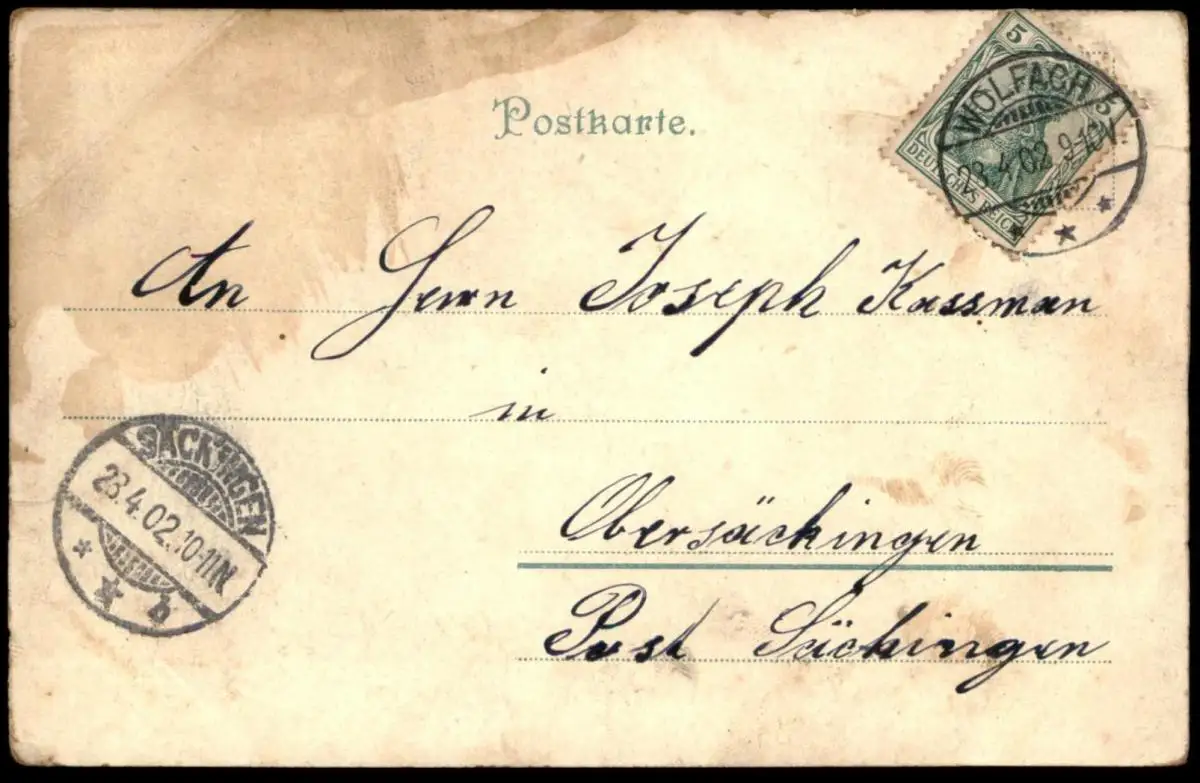 Postkarte.
5
DEUTSCHES REICH
WOLFACH
23.4.02.9-10N.
An Herrn Joseph Kassman
in
Obersäckingen
Post Säckingen
SÄCKINGEN
23.4.02.10-11N
b